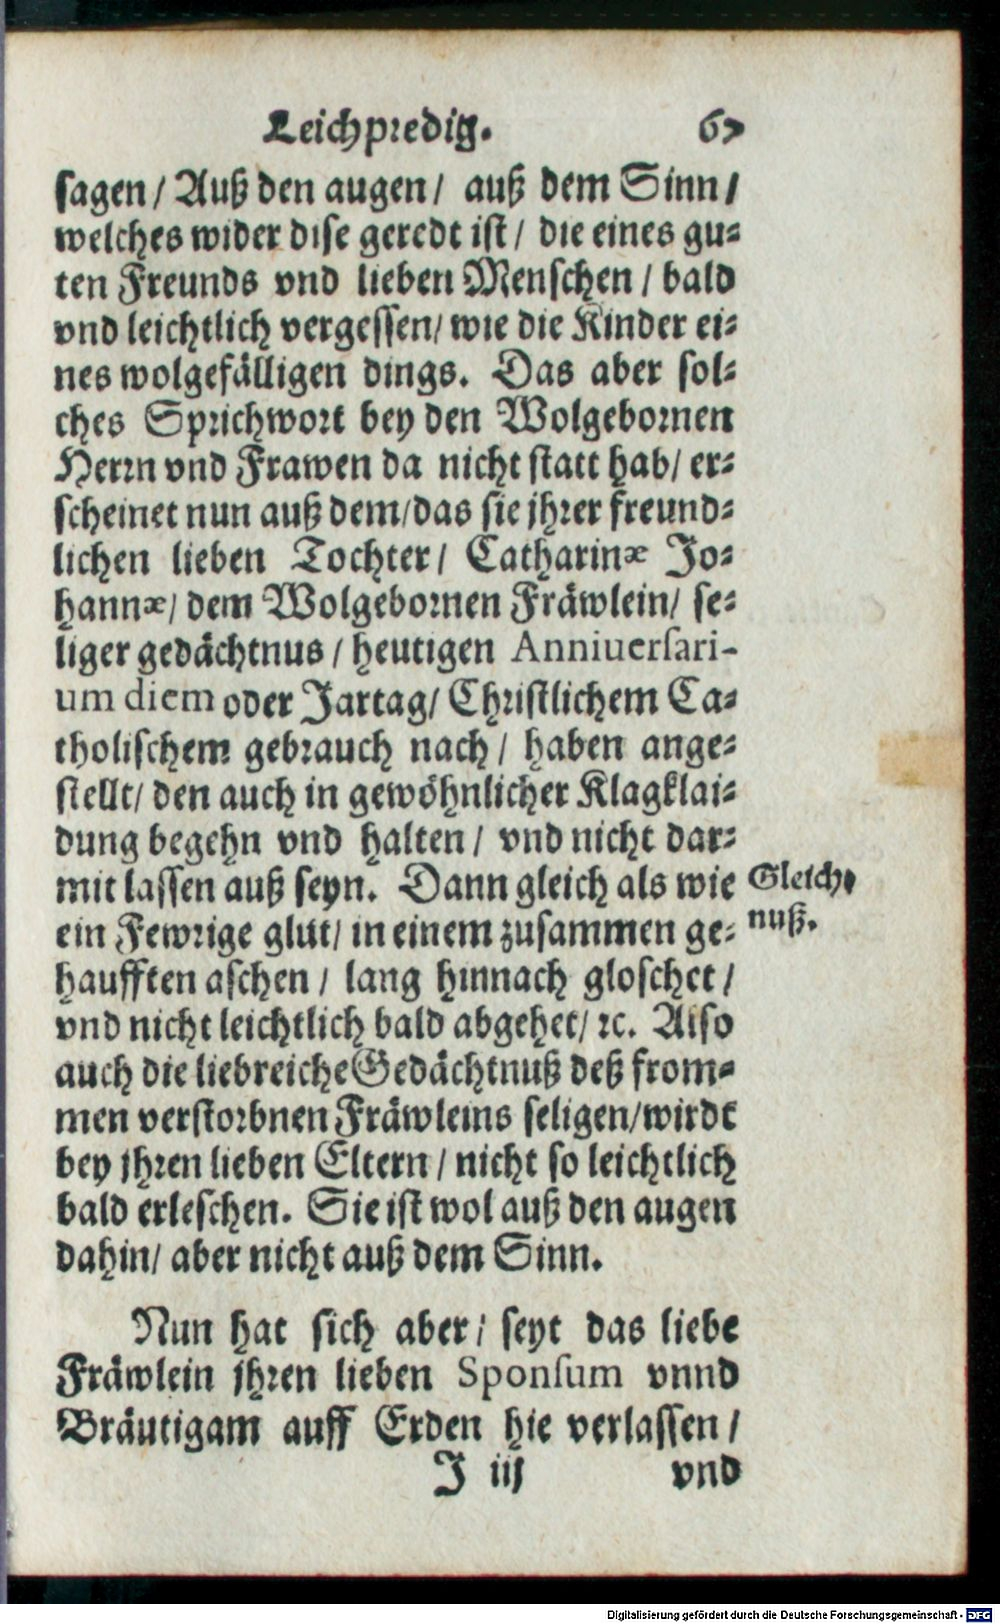 Leichpredig. 67
sagen / Auß den augen / auß dem Sinn /
welches wider dise geredt ist / die eines gu-
ten Freunds vnd lieben Menschen / bald
vnd leichtlich vergessen / wie die Kinder ei-
nes wolgefälligen dings. Das aber sol-
ches Sprichwort bey den Wolgebornen
Herrn vnd Frawen da nicht statt hab / er-
scheinet nun auß dem / das sie jhrer freund-
lichen lieben Tochter / Catharinæ Jo-
hannæ / dem Wolgebornen Fräwlein / se-
liger gedächtnus / heutigen Anniuersari-
um diem oder Jartag / Christlichem Ca-
tholischem gebrauch nach / haben ange-
stellt / den auch in gewöhnlicher Klagklai-
dung begehn vnd halten / vnd nicht dar-
mit lassen auß seyn. Dann gleich als wie
ein Fewrige glut / in einem zusammen ge-
haufften aschen / lang hinnach gloschet /
vnd nicht leichtlich bald abgehet / ꝛc. Also
auch die liebreiche Gedächtnuß deß from-
men verstorbnen Fräwleins seligen / wirdt
bey jhren lieben Eltern / nicht so leichtlich
bald erleschen. Sie ist wol auß den augen
dahin / aber nicht auß dem Sinn.
Gleich-
nuß.
Nun hat sich aber / seyt das liebe
Fräwlein jhren lieben Sponsum vnnd
Bräutigam auff Erden hie verlassen /
J iij vnd
Digitalisierung gefördert durch die Deutsche Forschungsgemeinschaft - DFG